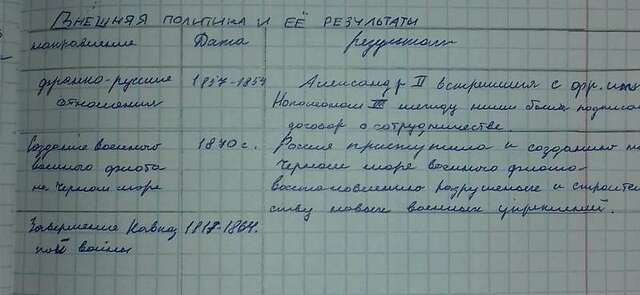 Внешняя политика и её результаты
направление Дата результат
франко-русские 1857-1859 Александр II встретился с фр. имп.
отношения Наполеоном III между ними был подписан
договор о сотрудничестве.
Создание военного 1870 г. Россия приступила к созданию на
военного флота Черном море военного флота
на Черном море восстановлению разрушенных и строитель
ству новых военных укреплений.
Завершение Кавказ 1817-1864.
ной войны